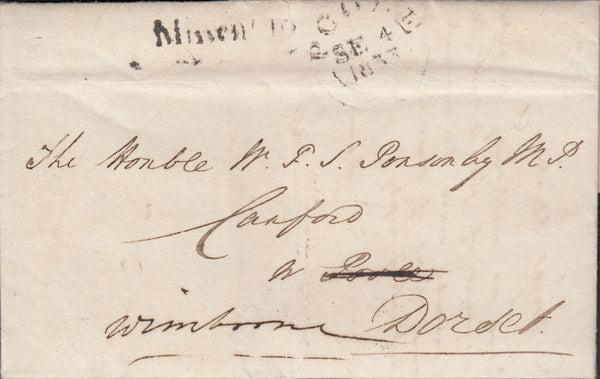 POOLE
SE 4
1833
The Honble W. F. S. Ponsonby M.P.
Canford
Nr Poole
Wimborne Dorset.